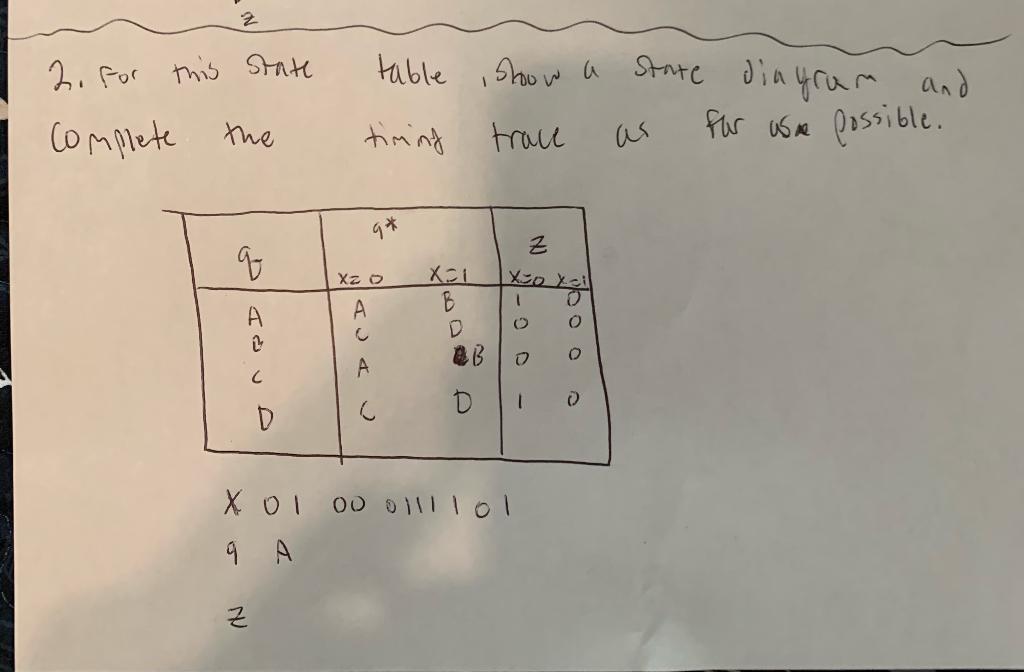 Z
2. For this State table, show a state diagram and
complete the timing trace as far as possible.
q*
q
Z
X=0 X=1 X=0 X=1
A A B 1 0
B C D 0 0
C A B 0 0
D C D 1 0
X 0 1 0 0 0 1 1 1 1 0 1
q A
Z